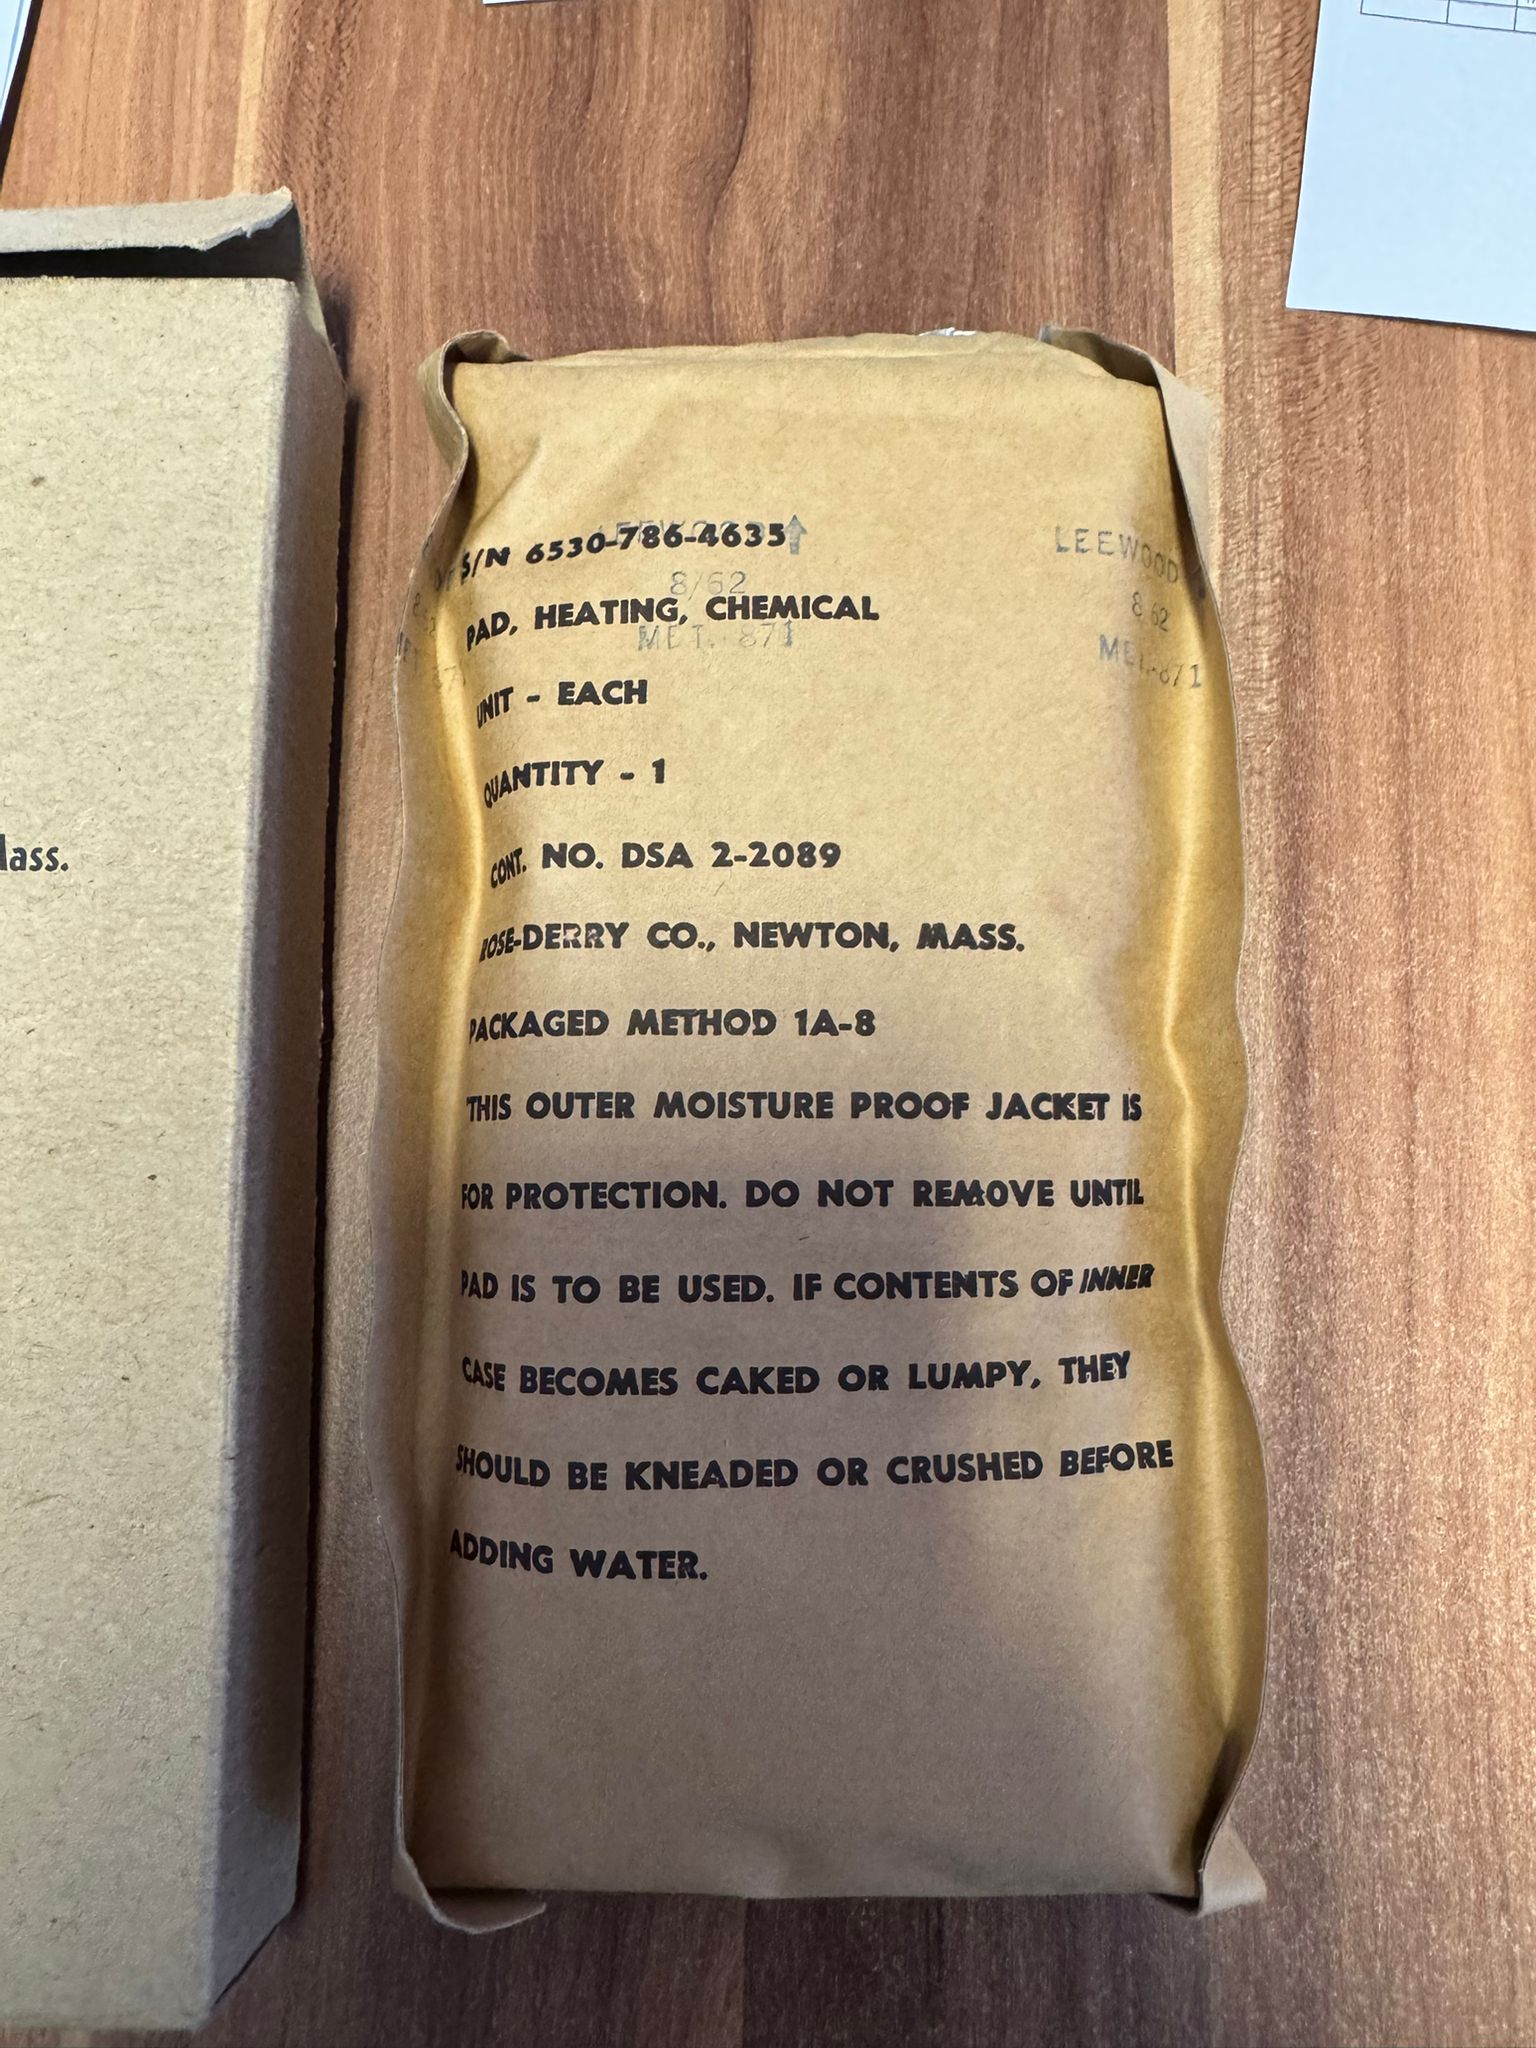 S/N 6530-786-4635
LEEWOOD
8/62
PAD, HEATING, CHEMICAL
MET. 871
8 62
MET.-871
UNIT - EACH
QUANTITY - 1
CONT. NO. DSA 2-2089
ROSE-DERRY CO., NEWTON, MASS.
PACKAGED METHOD 1A-8
THIS OUTER MOISTURE PROOF JACKET IS
FOR PROTECTION. DO NOT REMOVE UNTIL
PAD IS TO BE USED. IF CONTENTS OF INNER
CASE BECOMES CAKED OR LUMPY, THEY
SHOULD BE KNEADED OR CRUSHED BEFORE
ADDING WATER.